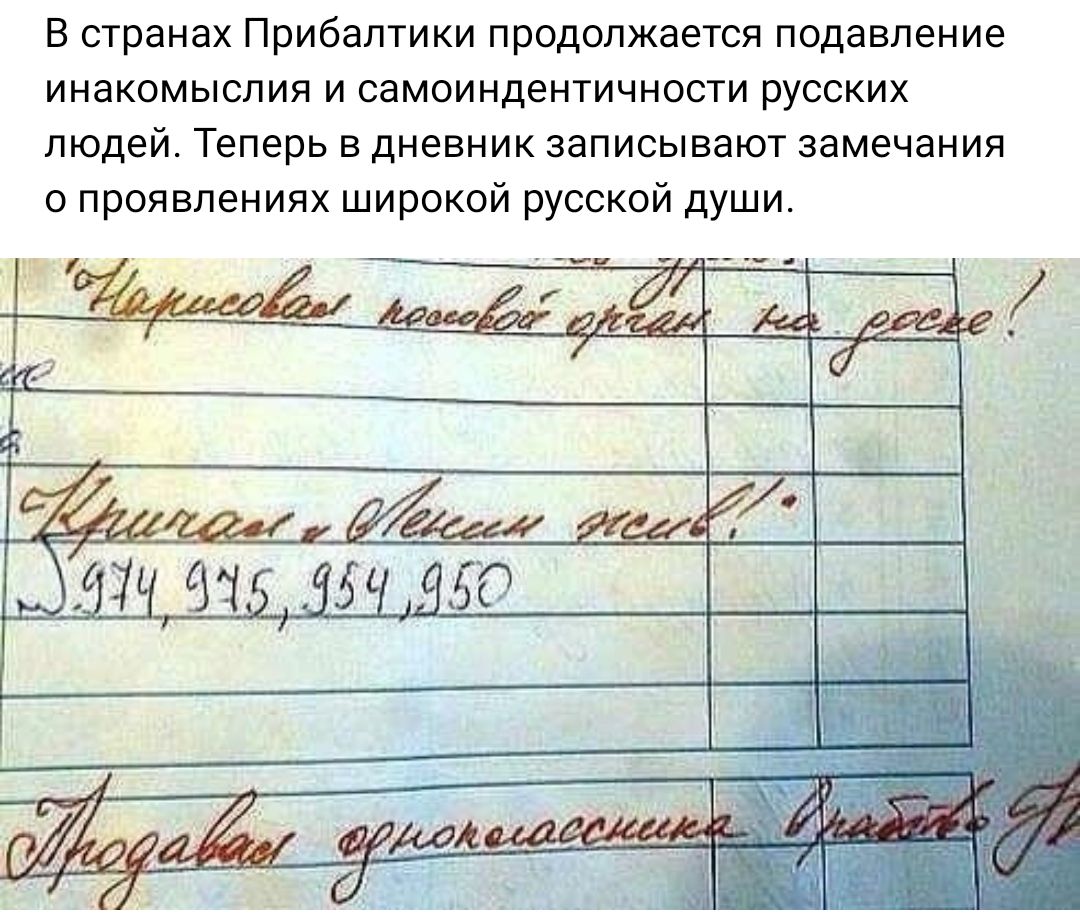 В странах Прибалтики продолжается подавление
инакомыслия и самоиндентичности русских
людей. Теперь в дневник записывают замечания
о проявлениях широкой русской души.
Нарисовал половой орган на доске!
Кричал „Ленин жив!"
974, 975, 954, 950
Продавал одноклассника в рабство